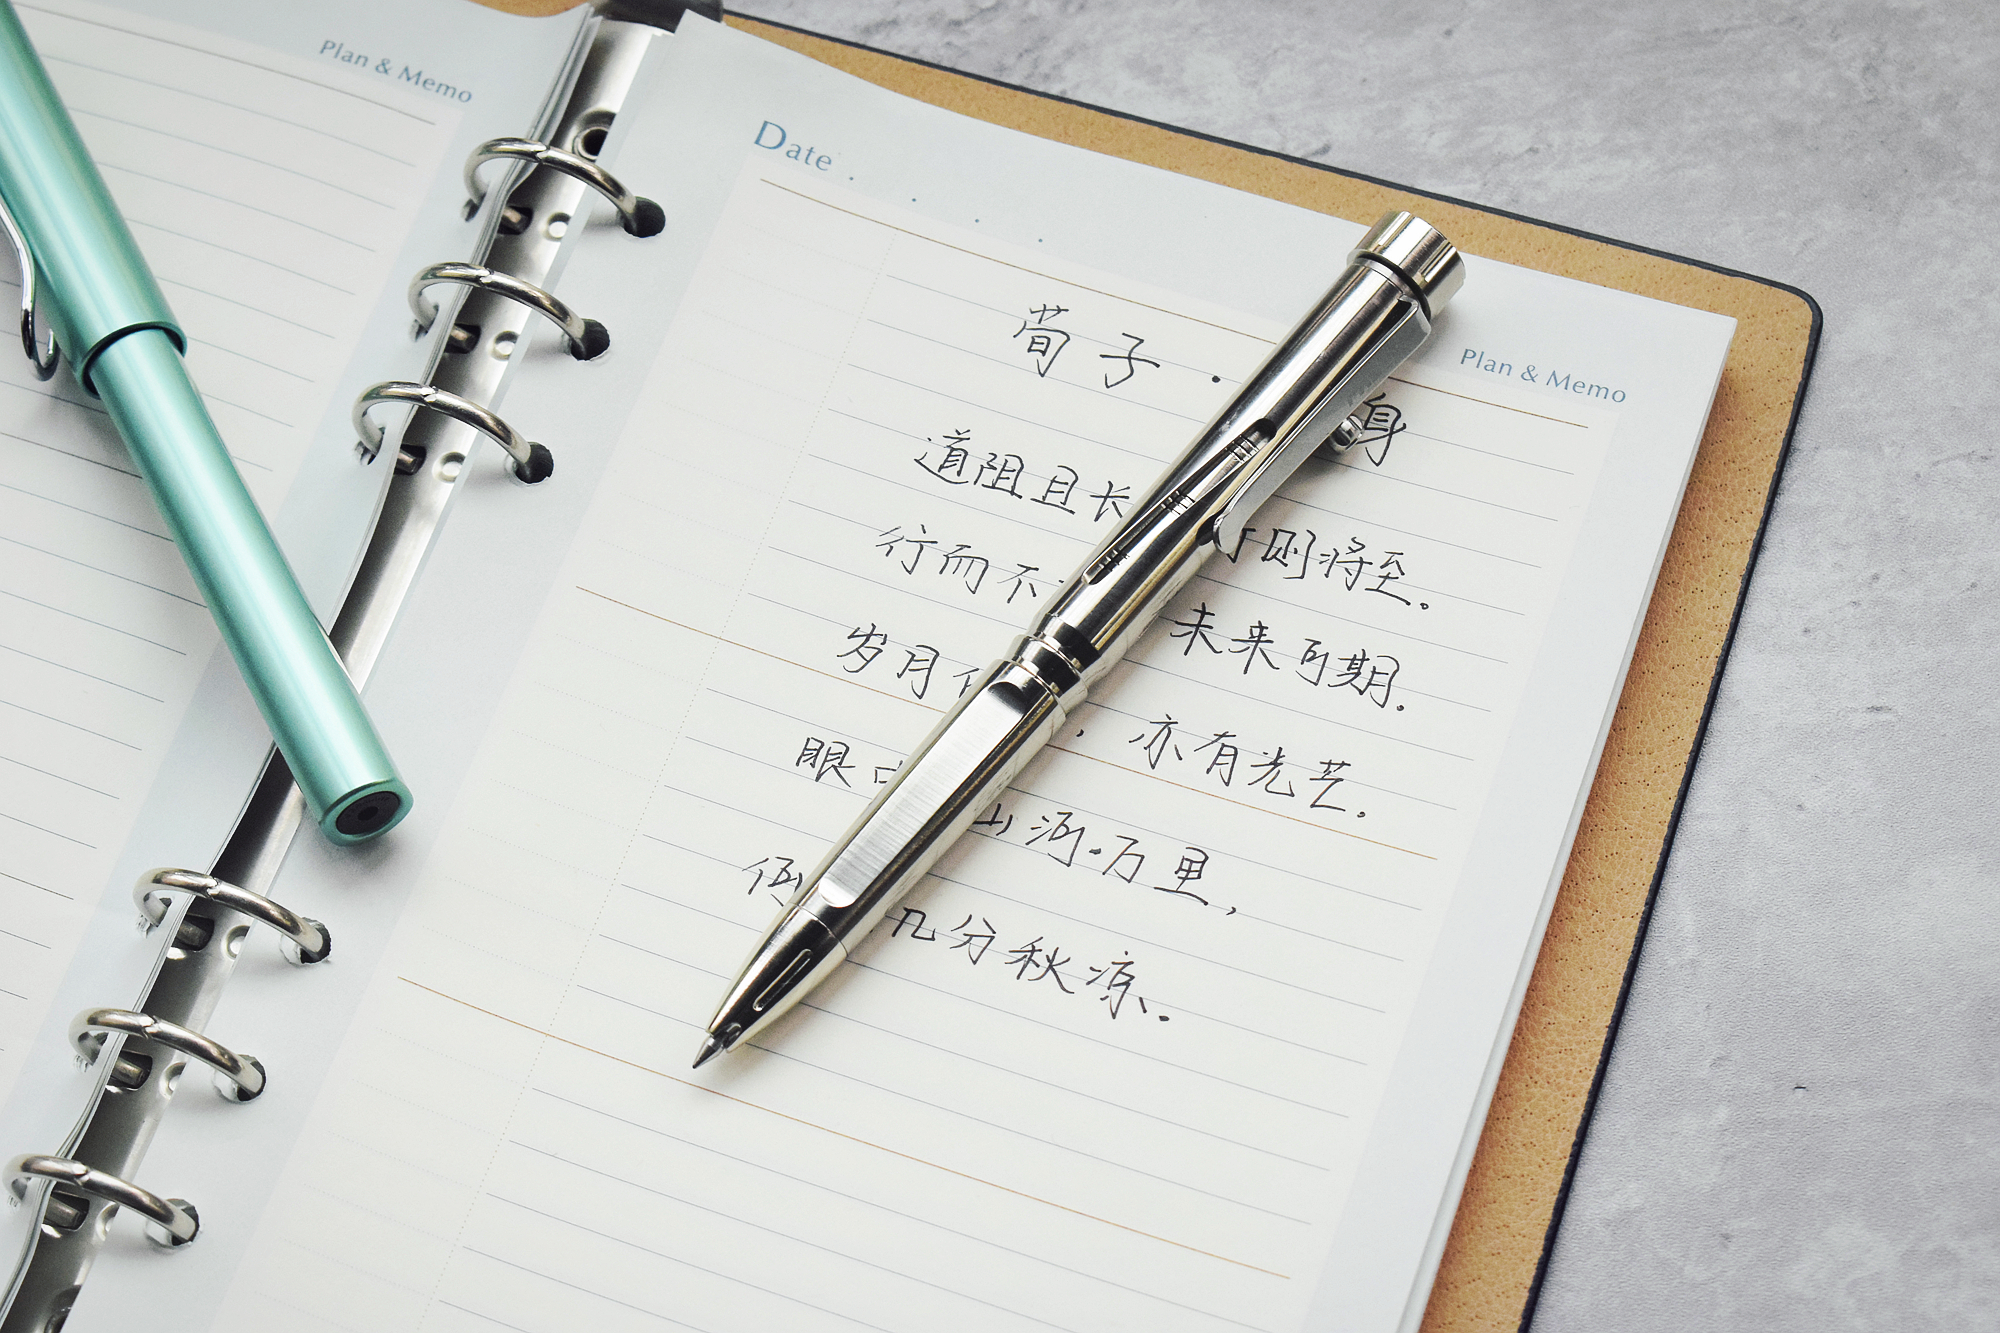 Plan & Memo
Date
Plan & Memo
荀子· 身
道阻且长 则将至。
行而不 未来可期.
岁月 , 亦有光芒.
眼 山河·万里,
几分秋凉.